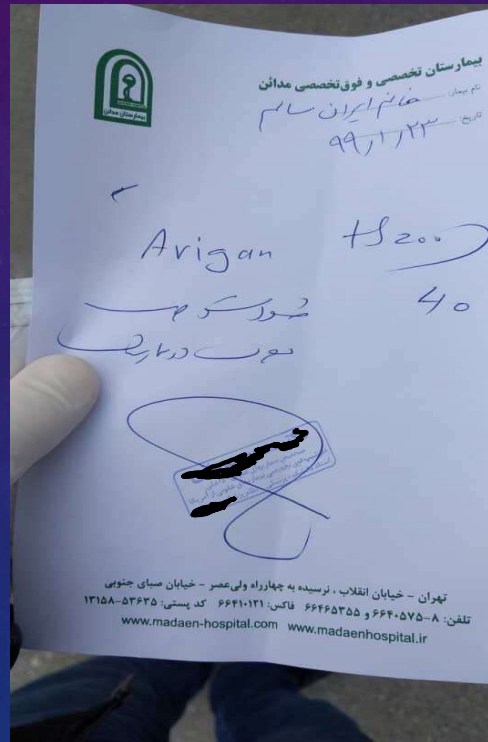 بیمارستان تخصصی و فوق‌تخصصی مدائن
بیمارستان مدائن
نام بیمار: خانم ایران سالم
تاریخ: ۹۹/۱/۲۳
Avigan tb 200
40
تهران - خیابان انقلاب ، نرسیده به چهارراه ولی‌عصر - خیابان صبای جنوبی
تلفن: ۸-۶۶۴۰۵۷۵ و ۶۶۴۶۵۳۵۵ فاکس: ۶۶۴۱۰۱۲۱ کد پستی: ۵۳۶۳۵-۱۳۱۵۸
www.madaen-hospital.com www.madaenhospital.ir